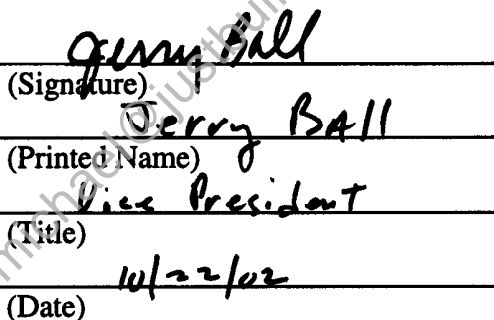 Jerry Ball
(Signature)
Jerry BAll
(Printed Name)
Vice President
(Title)
10/22/02
(Date)
michael@justbui